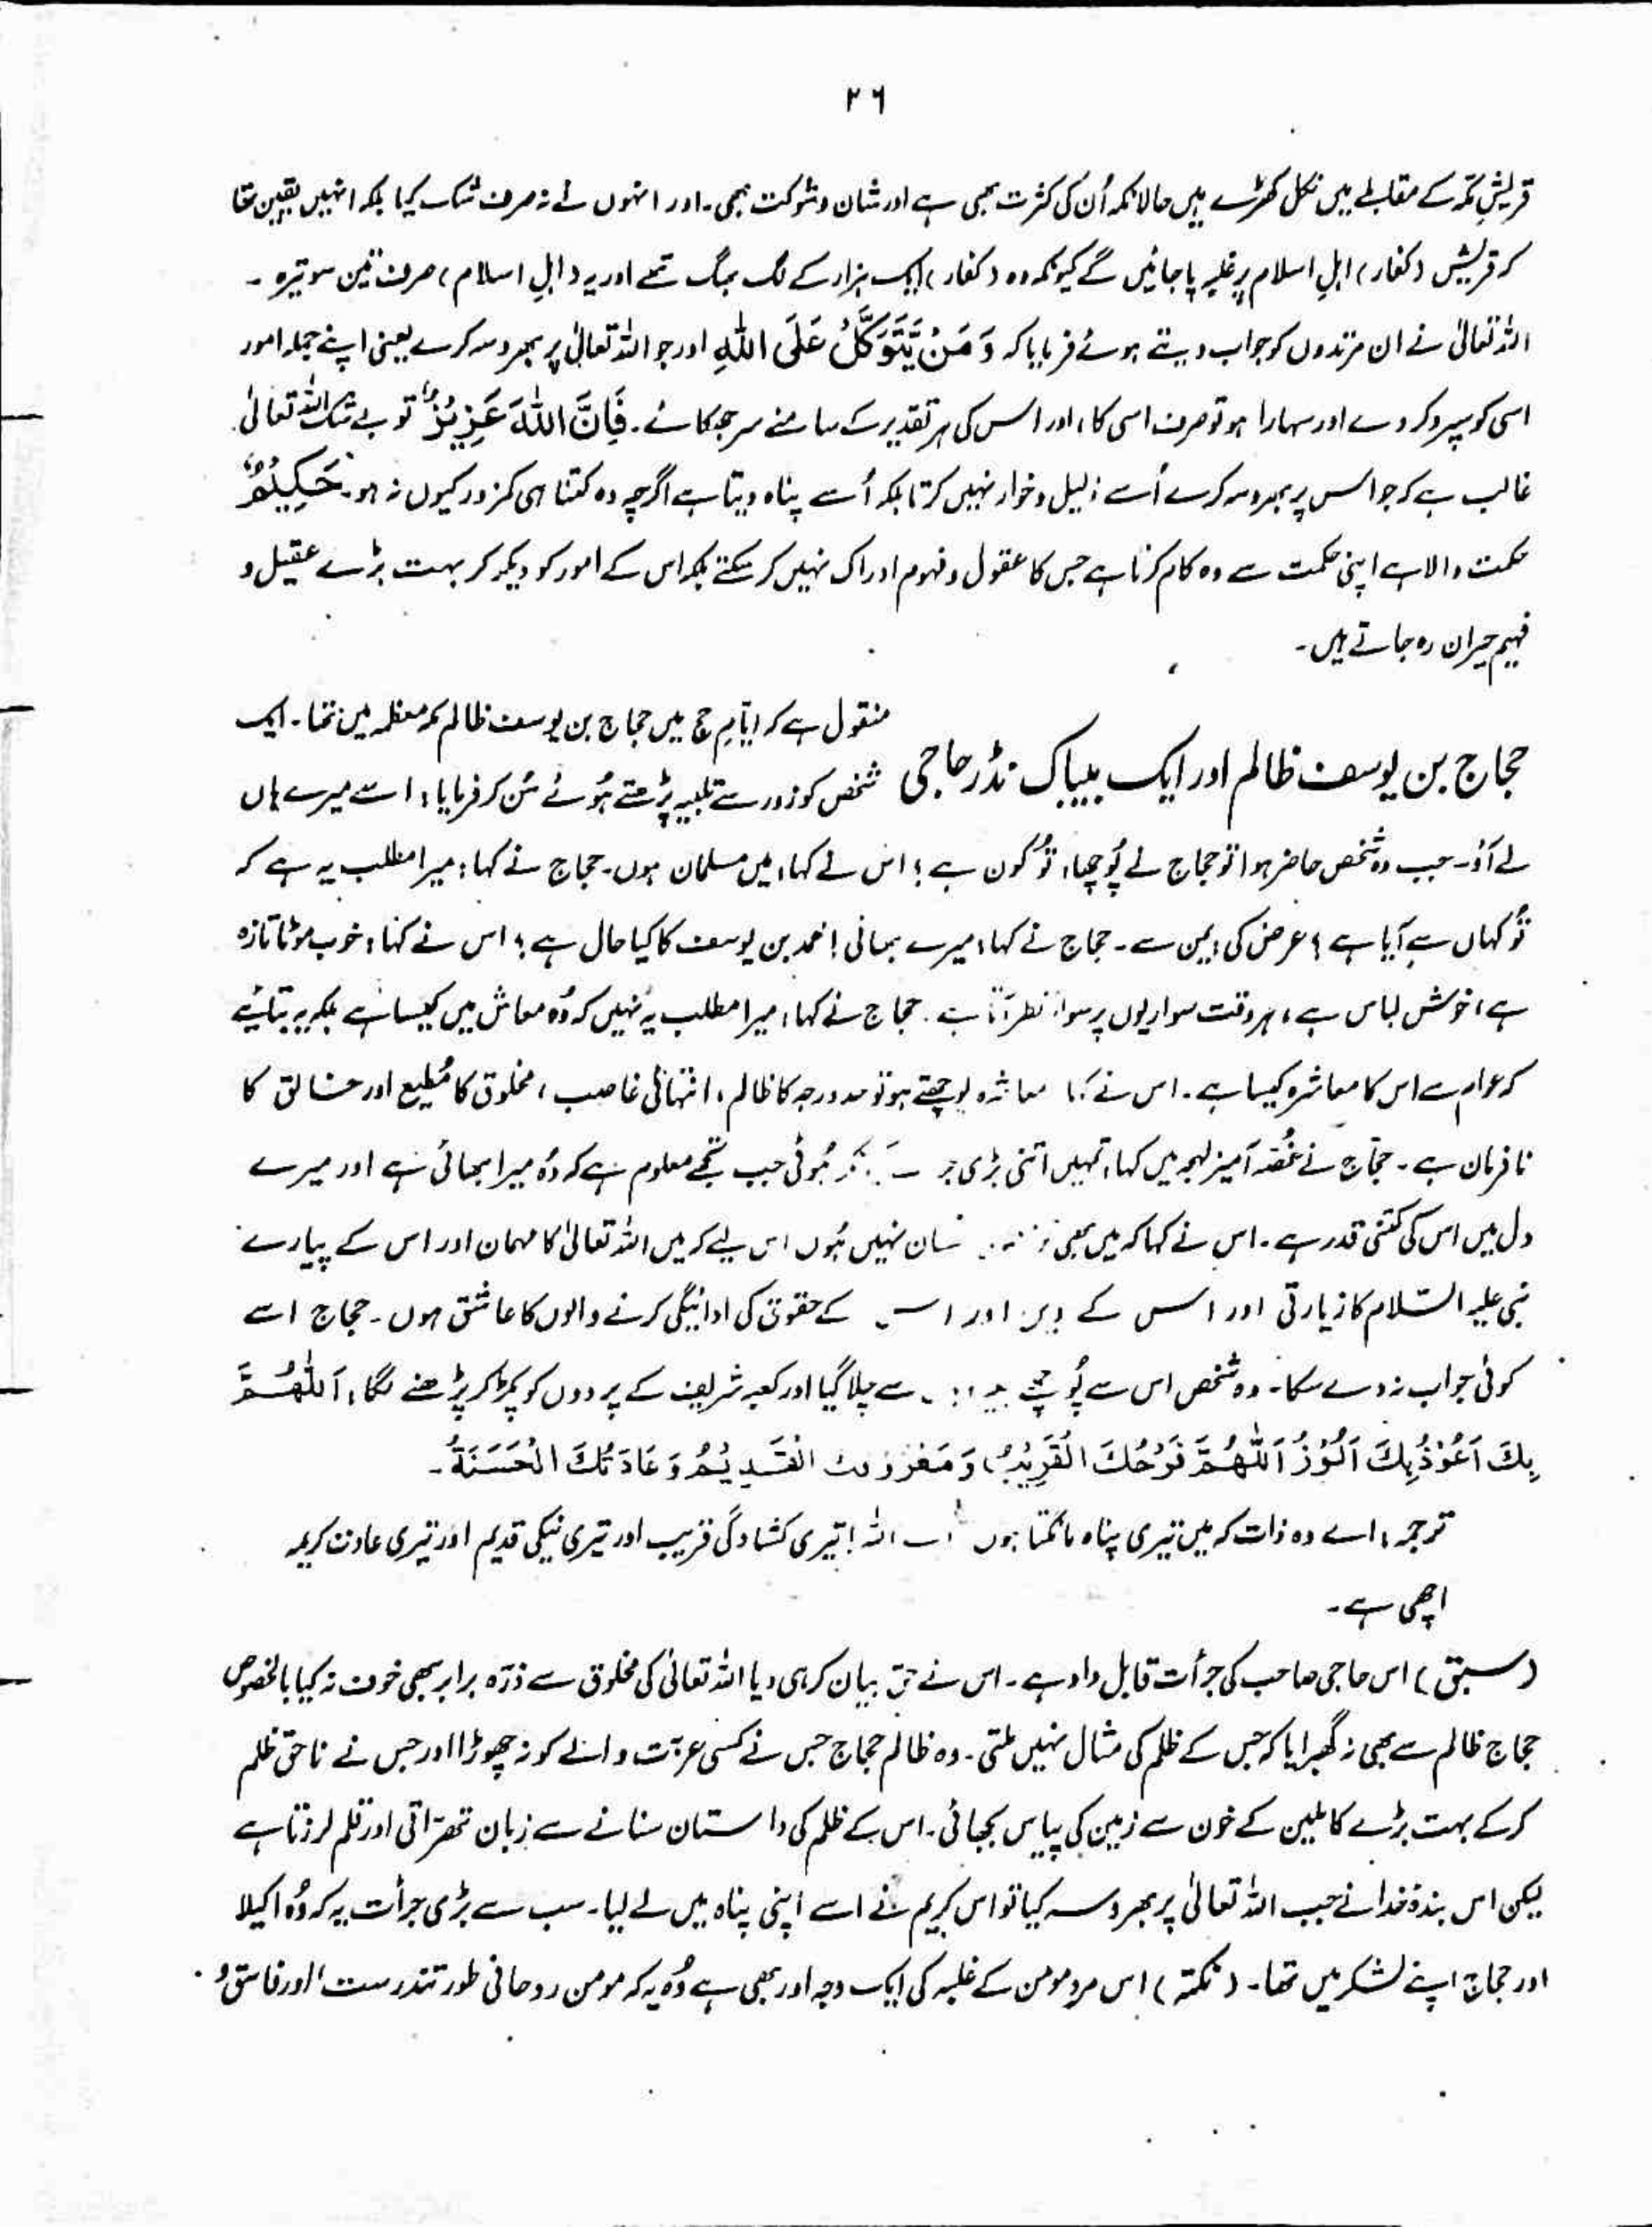 ۲۶
قریشِ مکہ کے مقابلے میں نکل کھڑے ہیں حالانکہ اُن کی کثرت بھی ہے اور شان و شوکت بھی۔ اور انہوں نے نہ صرف شک کیا بلکہ انہیں یقین تھا
کہ قریش (کفار) اہلِ اسلام پر غلبہ پا جائیں گے کیونکہ وہ (کفار) ایک ہزار کے لگ بھگ تھے اور یہ (اہلِ اسلام) صرف تین سو تیرہ۔
اللہ تعالیٰ نے ان مرتدوں کو جواب دیتے ہوئے فرمایا کہ وَ مَنْ یَّتَوَکَّلْ عَلَی اللّٰہِ اور جو اللہ تعالیٰ پر بھروسہ کرے یعنی اپنے جملہ امور
اسی کو سپرد کر دے اور سہارا ہو تو صرف اسی کا، اور اس کی ہر تقدیر کے سامنے سر جھکائے۔ فَاِنَّ اللّٰہَ عَزِیْزٌ تو بے شک اللہ تعالیٰ
غالب ہے کہ جو اس پر بھروسہ کرے اُسے ذلیل و خوار نہیں کرتا بلکہ اُسے پناہ دیتا ہے اگرچہ وہ کتنا ہی کمزور کیوں نہ ہو۔ حَکِیْمٌ
حکمت والا ہے اپنی حکمت سے وہ کام کرتا ہے جس کا عقول و فہوم ادراک نہیں کر سکتے بلکہ اس کے امور کو دیکھ کر بہت بڑے عقیل و
فہیم حیران رہ جاتے ہیں۔
حجاج بن یوسف ظالم اور ایک بیباک نڈر حاجی
منقول ہے کہ ایّامِ حج میں حجاج بن یوسف ظالم مکہ معظمہ میں تھا۔ ایک
شخص کو زور سے تلبیہ پڑھتے ہُوئے سُن کر فرمایا: اسے میرے ہاں
لے آؤ۔ جب وہ شخص حاضر ہوا تو حجاج نے پُوچھا: تُو کون ہے؟ اس نے کہا: میں مسلمان ہوں۔ حجاج نے کہا: میرا مطلب یہ ہے کہ
تُو کہاں سے آیا ہے؟ عرض کی: یمن سے۔ حجاج نے کہا: میرے بھائی محمد بن یوسف کا کیا حال ہے؟ اس نے کہا: خوب موٹا تازہ
ہے، خوش لباس ہے، ہر وقت سواریوں پر سوار نظر آتا ہے۔ حجاج نے کہا: میرا مطلب یہ نہیں کہ وُہ معاش میں کیسا ہے بلکہ یہ بتائیے
کہ عوام سے اس کا معاشرہ کیسا ہے۔ اس نے کہا معاشرہ پوچھتے ہو تو حد درجہ کا ظالم، انتہائی غاصب، مخلوق کا مُطیع اور خالق کا
نافرمان ہے۔ حجّاج نے غُصّہ آمیز لہجہ میں کہا: تمہیں اتنی بڑی ہُوئی جب تجھے معلوم ہے کہ وُہ میرا بھائی ہے اور میرے
دل میں اس کی کتنی قدر ہے۔ اس نے کہا کہ میں بھی نہیں ہُوں اس لیے کہ میں اللہ تعالیٰ کا مہمان اور اس کے پیارے
نبی علیہ السّلام کا زیارتی اور اس کے دین اور اس کے حقوق کی ادائیگی کرنے والوں کا عاشق ہوں۔ حجاج اسے
کوئی جواب نہ دے سکا۔ وہ شخص اس سے سے چلا گیا اور کعبہ شریف کے پردوں کو پکڑ کر پڑھنے لگا: اَللّٰھُمَّ
بِکَ اَعُوْذُ بِکَ اَلُوْذُ اَللّٰھُمَّ فَرْجُکَ الْقَرِیْبُ وَ مَعْرُوْفُکَ الْقَدِیْمُ وَ عَادَتُکَ الْحَسَنَۃُ۔
ترجمہ: اے وہ ذات کہ میں تیری پناہ مانگتا ہوں اے اللہ! تیری کشادگی قریب اور تیری نیکی قدیم اور تیری عادت کریمہ
اچھی ہے۔
(سبق) اس حاجی صاحب کی جرأت قابلِ داد ہے۔ اس نے حق بیان کر ہی دیا اللہ تعالیٰ کی مخلوق سے ذرّہ برابر بھی خوف نہ کیا بالخصوص
حجاج ظالم سے بھی نہ گھبرایا کہ جس کے ظلم کی مثال نہیں ملتی۔ وہ ظالم حجاج جس نے کسی عزّت والے کو نہ چھوڑا اور جس نے ناحق ظلم
کر کے بہت بڑے کاملین کے خون سے زمین کی پیاس بجھائی۔ اس کے ظلم کی داستان سنانے سے زبان تھرّاتی اور قلم لرزتا ہے
لیکن اس بندۂ خدا نے جب اللہ تعالیٰ پر بھروسہ کیا تو اس کریم نے اسے اپنی پناہ میں لے لیا۔ سب سے بڑی جرأت یہ کہ وُہ اکیلا
اور حجاج اپنے لشکر میں تھا۔ (نکتہ) اس مردِ مومن کے غلبہ کی ایک وجہ اور بھی ہے وُہ یہ کہ مومن روحانی طور تندرست اور فاسق و